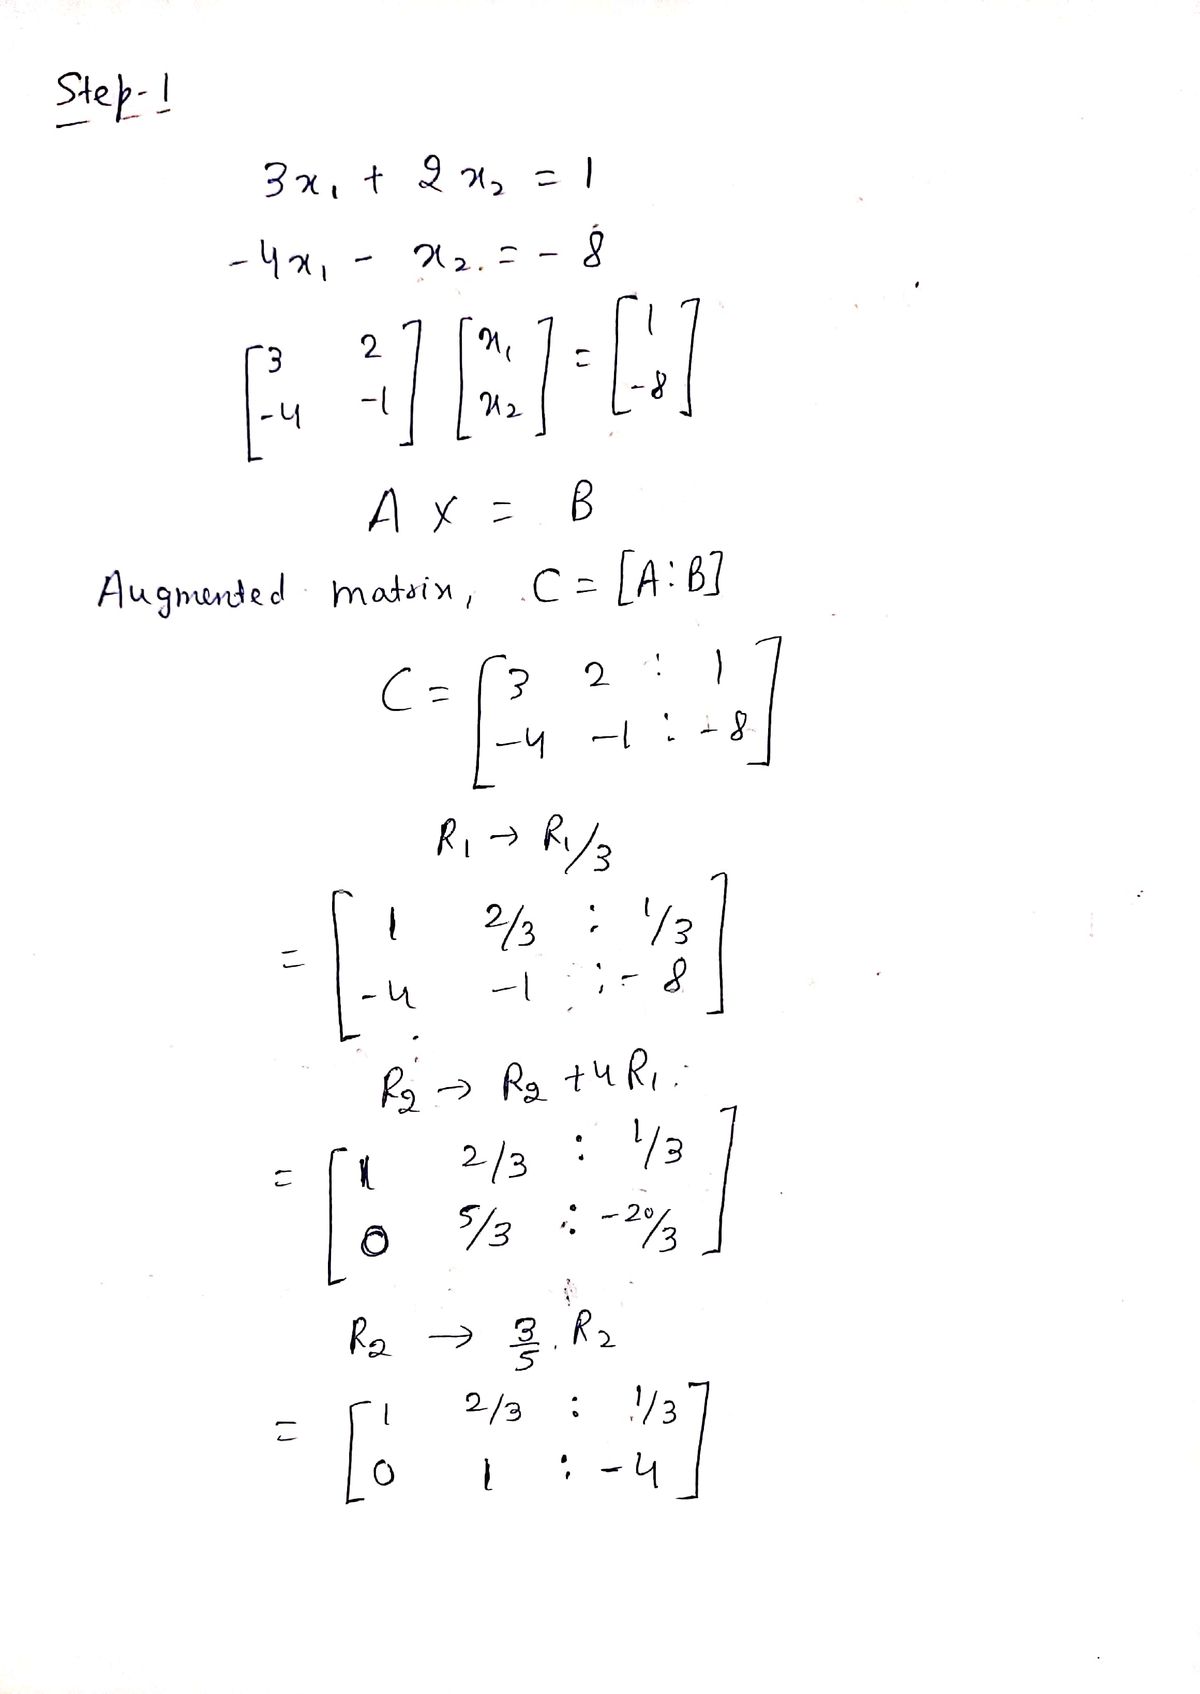 Step-1
3x₁ + 2x₂ = 1
-4x₁ - x₂ = -8
[3 2
-4 -1] [x₁
x₂] = [1
-8]
A X = B
Augmented matrix, C = [A:B]
C = [3 2 : 1
-4 -1 : -8]
R₁ → R₁/3
= [1 2/3 : 1/3
-4 -1 : -8]
R₂ → R₂ + 4R₁
= [1 2/3 : 1/3
0 5/3 : -20/3]
R₂ → 3/5 . R₂
= [1 2/3 : 1/3
0 1 : -4]